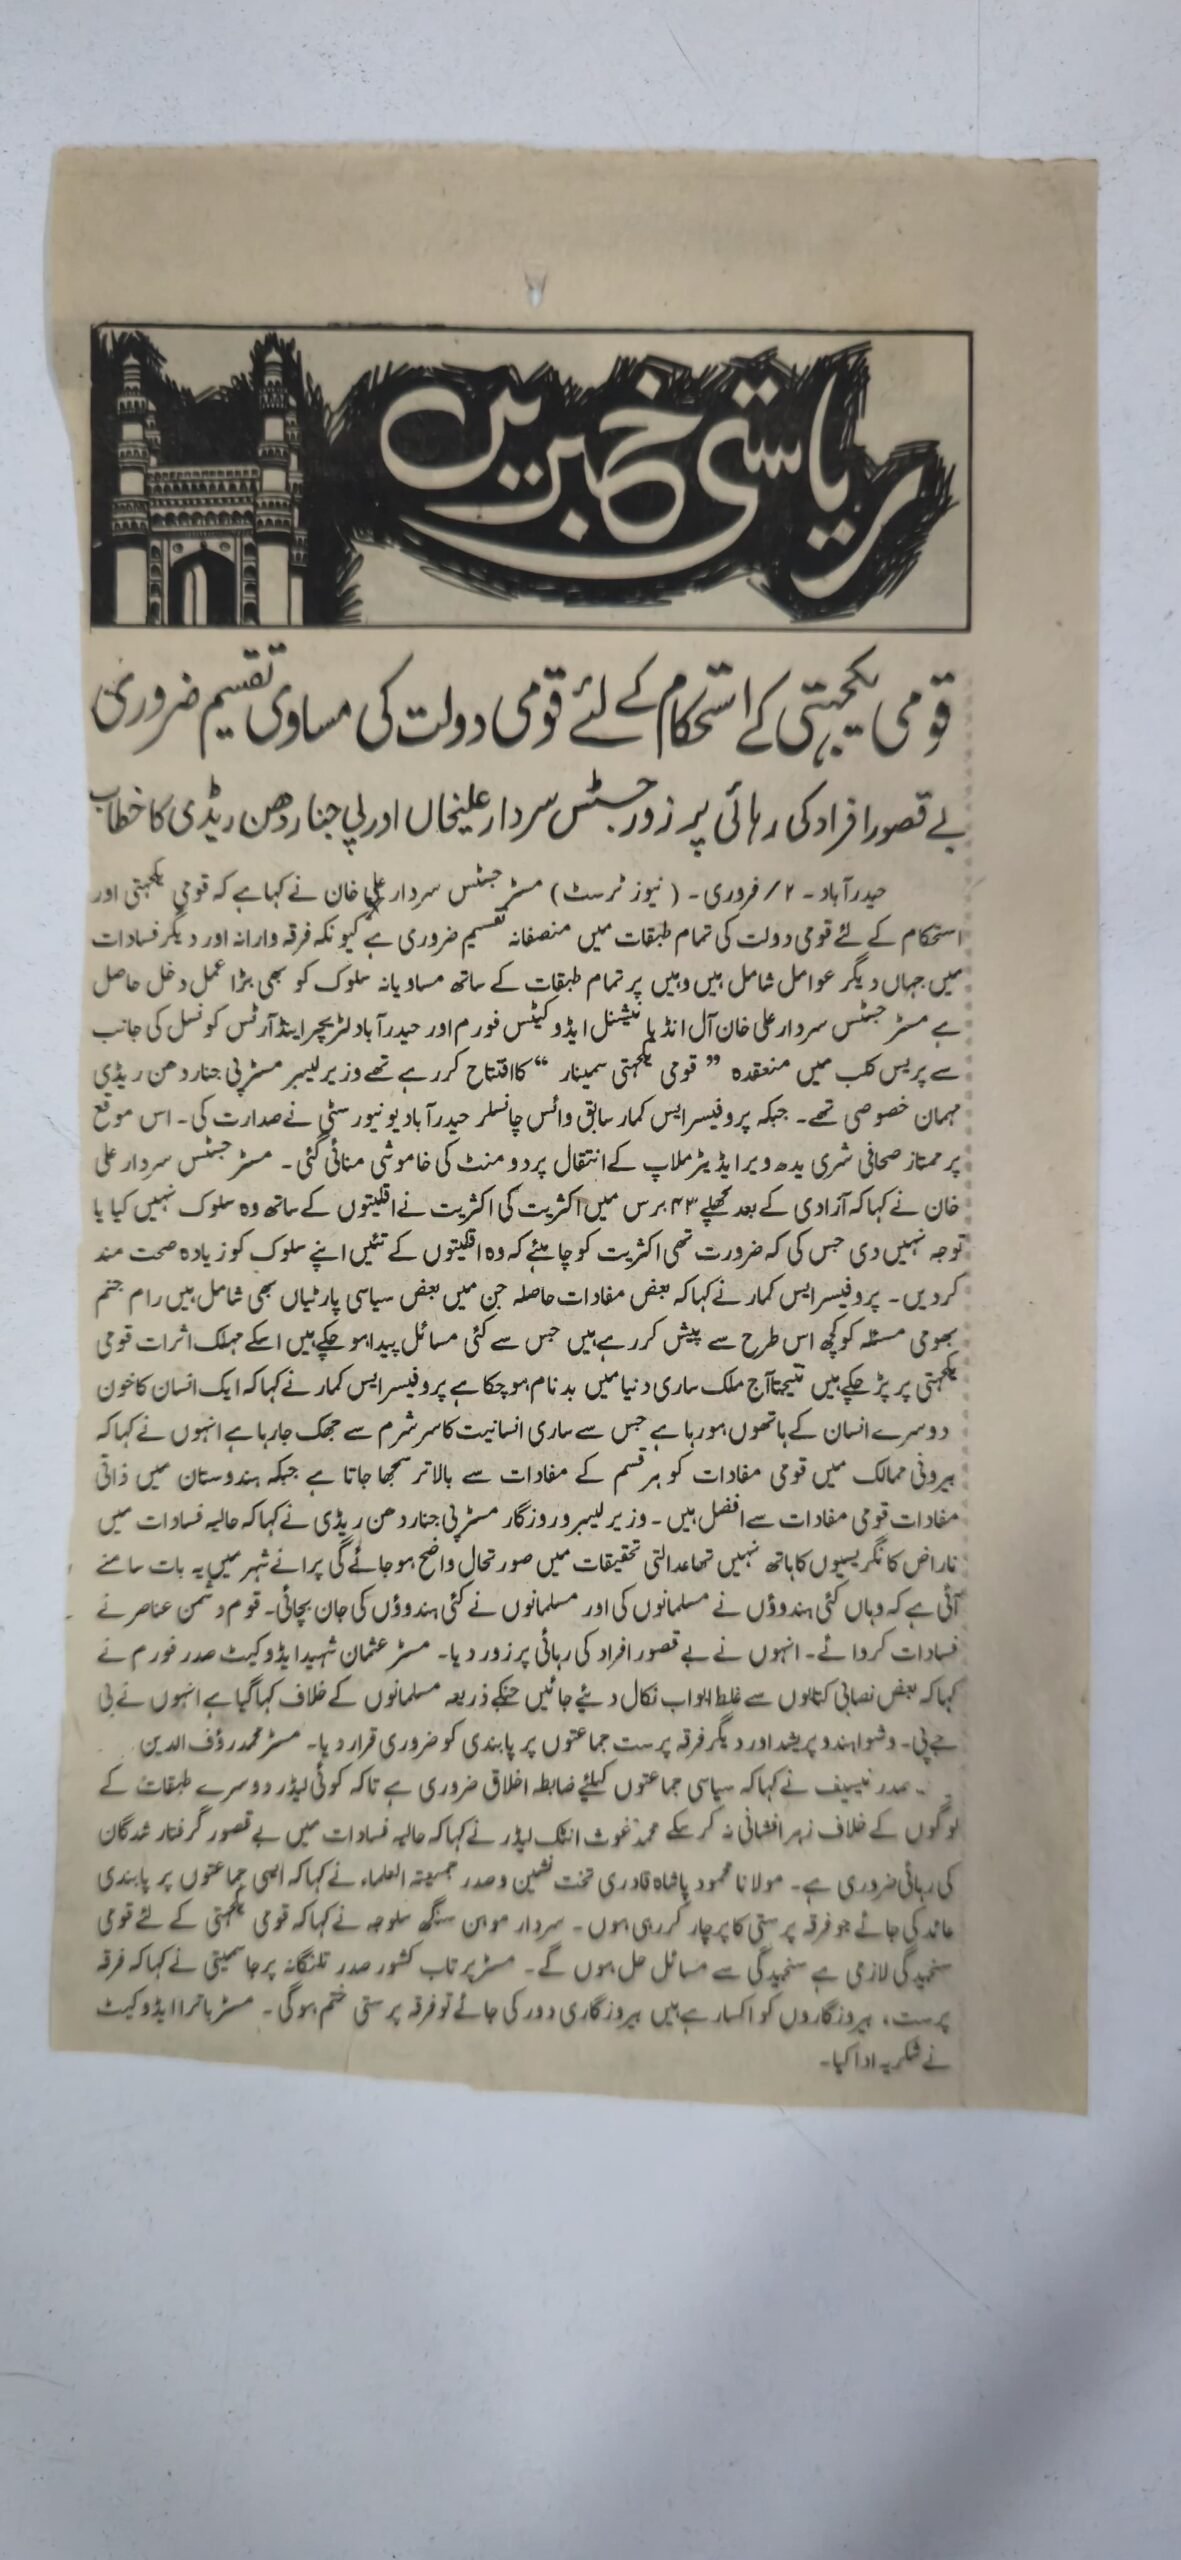 ریاستی خبریں
قومی یکجہتی کے استحکام کے لئے قومی دولت کی مساوی تقسیم ضروری
بے قصور افراد کی رہائی پر زور جسٹس سردار علیخاں اور پی جنار دھن ریڈی کا خطاب
حیدرآباد ۔ ۲ / فروری ۔ ( نیوز ٹرسٹ ) مسٹر جسٹس سردار علی خان نے کہا ہے کہ قومی یکجہتی اور
استحکام کے لئے قومی دولت کی تمام طبقات میں منصفانہ تقسیم ضروری ہے کیونکہ فرقہ وارانہ اور دیگر فسادات
میں جہاں دیگر عوامل شامل ہیں وہیں پر تمام طبقات کے ساتھ مساویانہ سلوک کو بھی بڑا عمل دخل حاصل
ہے مسٹر جسٹس سردار علی خان آل انڈیا نیشنل ایڈوکیٹس فورم اور حیدرآباد لٹریچر اینڈ آرٹس کونسل کی جانب
سے پریس کلب میں منعقدہ ” قومی یکجہتی سمینار “ کا افتتاح کر رہے تھے وزیر لیبر مسٹر پی جناردھن ریڈی
مہمان خصوصی تھے ۔ جبکہ پروفیسر ایس کمار سابق وائس چانسلر حیدرآباد یونیورسٹی نے صدارت کی ۔ اس موقع
پر ممتاز صحافی شری یدھ ویر ایڈیٹر ملاپ کے انتقال پر دو منٹ کی خاموشی منائی گئی ۔ مسٹر جسٹس سردار علی
خان نے کہا کہ آزادی کے بعد پچھلے ۴۳ برس میں اکثریت کی اکثریت نے اقلیتوں کے ساتھ وہ سلوک نہیں کیا یا
توجہ نہیں دی جس کی کہ ضرورت تھی اکثریت کو چاہئے کہ وہ اقلیتوں کے تئیں اپنے سلوک کو زیادہ صحت مند
کر دیں ۔ پروفیسر ایس کمار نے کہا کہ بعض مفادات حاصلہ جن میں بعض سیاسی پارٹیاں بھی شامل ہیں رام جنم
بھومی مسئلہ کو کچھ اس طرح سے پیش کر رہے ہیں جس سے کئی مسائل پیدا ہو چکے ہیں اسکے مہلک اثرات قومی
یکجہتی پر پڑ چکے ہیں نتیجتاً آج ملک ساری دنیا میں بدنام ہو چکا ہے پروفیسر ایس کمار نے کہا کہ ایک انسان کا خون
دوسرے انسان کے ہاتھوں ہو رہا ہے جس سے ساری انسانیت کا سر شرم سے جھک جا رہا ہے انہوں نے کہا کہ
بیرونی ممالک میں قومی مفادات کو ہر قسم کے مفادات سے بالاتر سمجھا جاتا ہے جبکہ ہندوستان میں ذاتی
مفادات قومی مفادات سے افضل ہیں ۔ وزیر لیبر و روزگار مسٹر پی جناردھن ریڈی نے کہا کہ حالیہ فسادات میں
ناراض کانگریسیوں کا ہاتھ نہیں تھا عدالتی تحقیقات میں صورتحال واضح ہو جائے گی پرانے شہر میں یہ بات سامنے
آئی ہے کہ وہاں کئی ہندوؤں نے مسلمانوں کی اور مسلمانوں نے کئی ہندوؤں کی جان بچائی ۔ قوم دشمن عناصر نے
فسادات کروائے ۔ انہوں نے بے قصور افراد کی رہائی پر زور دیا ۔ مسٹر عثمان شہید ایڈوکیٹ صدر فورم نے
کہا کہ بعض نصابی کتابوں سے غلط ابواب نکال دیئے جائیں جنکے ذریعہ مسلمانوں کے خلاف کہا گیا ہے انہوں نے بی
جے پی ۔ وشوا ہندو پریشد اور دیگر فرقہ پرست جماعتوں پر پابندی کو ضروری قرار دیا ۔ مسٹر محمد رؤف الدین
صدر نے کہا کہ سیاسی جماعتوں کیلئے ضابطہ اخلاق ضروری ہے تاکہ کوئی لیڈر دوسرے طبقات کے
لوگوں کے خلاف زہر افشانی نہ کر سکے محمد غوث انٹک لیڈر نے کہا کہ حالیہ فسادات میں بے قصور گرفتار شدگان
کی رہائی ضروری ہے ۔ مولانا محمود پاشاہ قادری تخت نشین و صدر جمیعتہ العلماء نے کہا کہ ایسی جماعتوں پر پابندی
عائد کی جائے جو فرقہ پرستی کا پرچار کر رہی ہوں ۔ سردار موہن سنگھ سلوجہ نے کہا کہ قومی یکجہتی کے لئے قومی
سنجیدگی لازمی ہے سنجیدگی سے مسائل حل ہوں گے ۔ مسٹر پرتاب کشور صدر تلنگانہ پرجا سمیتی نے کہا کہ فرقہ
پرست ، بیروزگاروں کو اکسا رہے ہیں بیروزگاری دور کی جائے تو فرقہ پرستی ختم ہوگی ۔ مسٹر باترا ایڈوکیٹ
نے شکریہ ادا کیا ۔